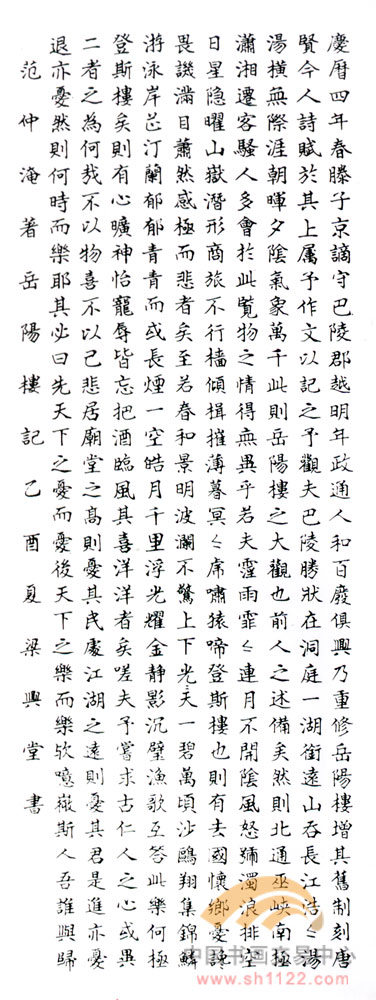 慶曆四年春滕子京謫守巴陵郡越明年政通人和百廢俱興乃重修岳陽樓增其舊制刻唐
賢今人詩賦於其上属予作文以記之予觀夫巴陵勝狀在洞庭一湖銜遠山吞長江浩〻湯
湯橫無際涯朝暉夕陰氣象萬千此則岳陽樓之大觀也前人之述備矣然則北通巫峽南極
瀟湘遷客騷人多會於此覧物之情得無異乎若夫霪雨霏〻連月不開陰風怒彌濁浪排空
日星隐曜山嶽潛形商旅不行檣傾楫摧薄暮冥〻席嘯猿啼登斯樓也則有去國懷鄉憂讒
畏譏滿目蕭然感極而悲者矣至若春和景明波瀾不驚上下光天一碧萬頃沙鷗翔集錦鱗
游泳岸芷汀蘭郁郁青青而或長煙一空皓月千里浮光耀金静影沉璧漁歌互答此樂何極
登斯樓矣則有心曠神怡寵辱皆忘把酒臨風其喜洋洋者矣嗟夫予嘗求古仁人之心或異
二者之為何哉不以物喜不以己悲居廟堂之高則憂其民處江湖之遠則憂其君是進亦憂
退亦憂然則何時而樂耶其必曰先天下之憂而憂後天下之樂而樂欤噫微斯人吾誰與歸
范仲淹著岳陽樓記乙酉夏梁興堂書
中国书画交易中心
www.sh1122.com